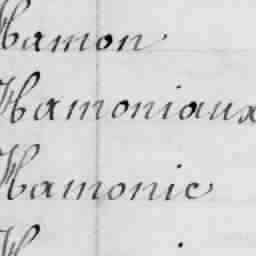 Hamon
Hamoniaux
Hamonic